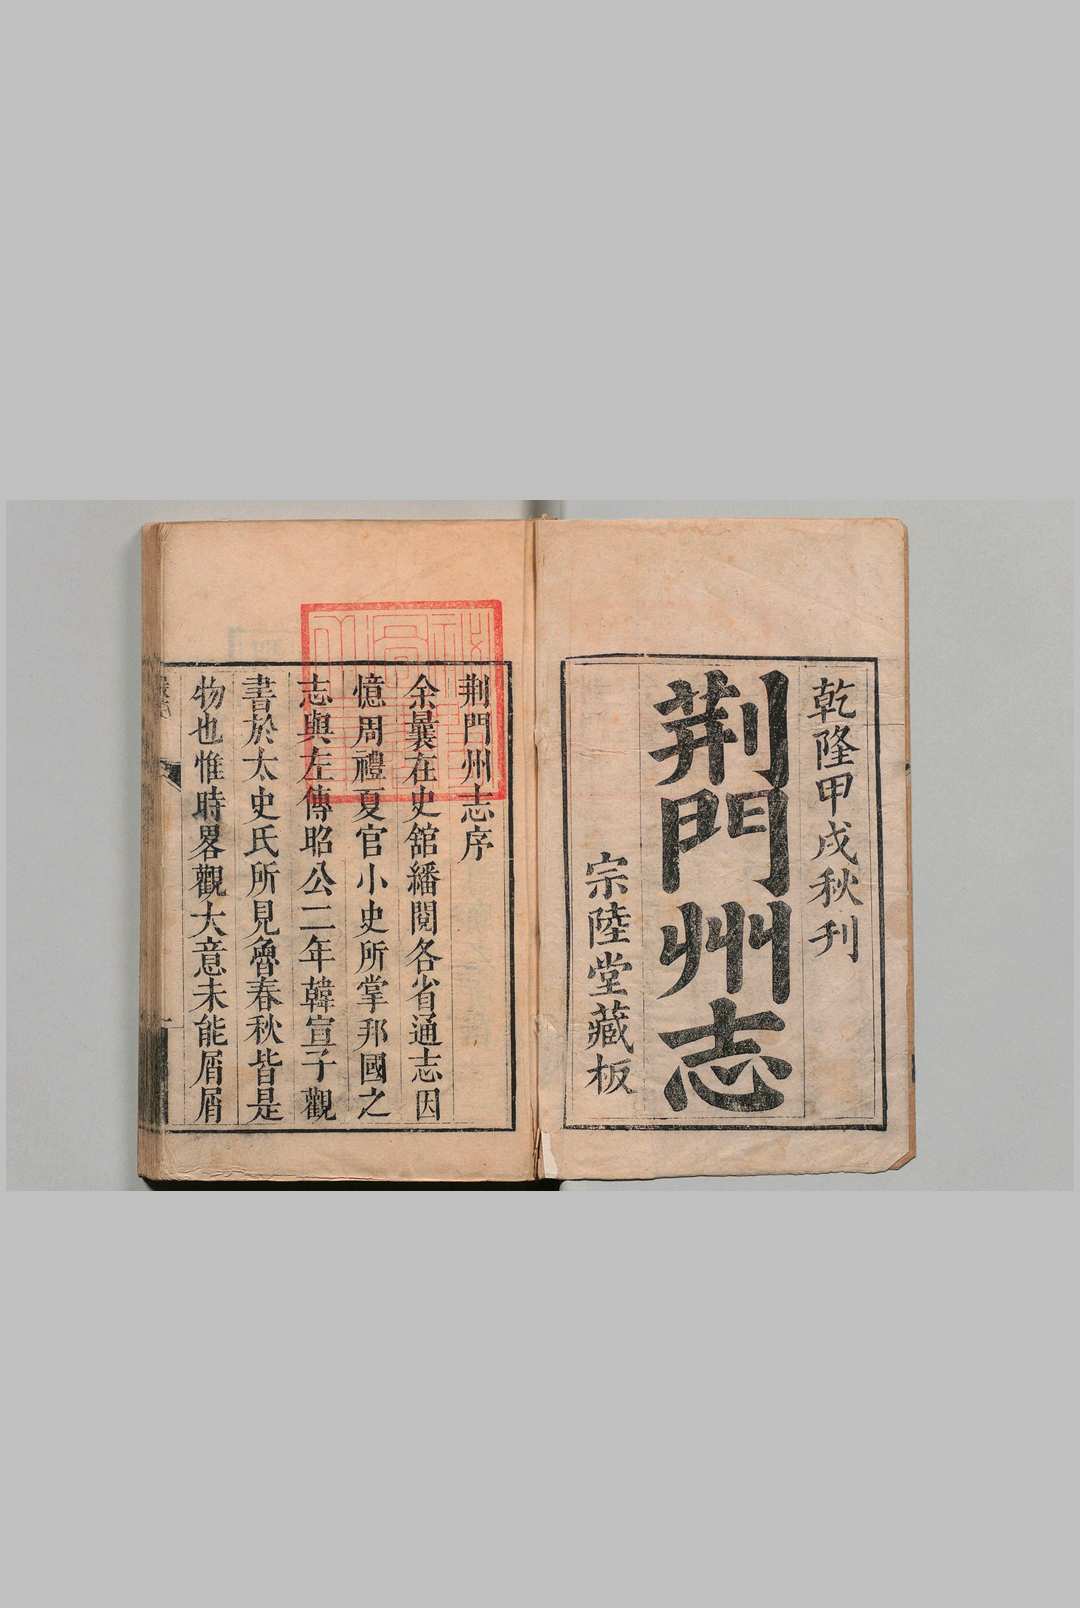 乾隆甲戌秋刊
荆門州志
宗陸堂藏板
荆門州志序
余曩在史舘繙閱各省通志因
憶周禮夏官小史所掌邦國之
志與左傳昭公二年韓宣子觀
書於太史氏所見魯春秋皆是
物也惟時畧觀大意未能屑屑